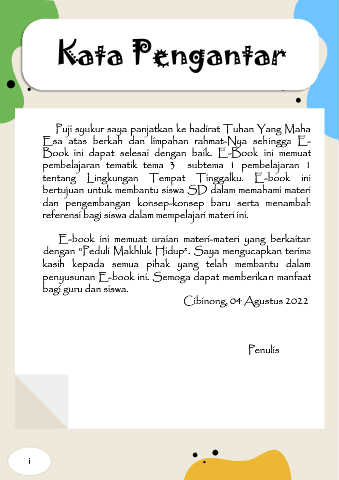 Kata Pengantar
Puji syukur saya panjatkan ke hadirat Tuhan Yang Maha
Esa atas berkah dan limpahan rahmat-Nya sehingga E-
Book ini dapat selesai dengan baik. E-Book ini memuat
pembelajaran tematik tema 3 subtema 1 pembelajaran 1
tentang Lingkungan Tempat Tinggalku. E-book ini
bertujuan untuk membantu siswa SD dalam memahami materi
dan pengembangan konsep-konsep baru serta menambah
referensi bagi siswa dalam mempelajari materi ini.
E-book ini memuat uraian materi-materi yang berkaitan
dengan "Peduli Makhluk Hidup". Saya mengucapkan terima
kasih kepada semua pihak yang telah membantu dalam
penyusunan E-book ini. Semoga dapat memberikan manfaat
bagi guru dan siswa.
Cibinong, 04 Agustus 2022
Penulis
i